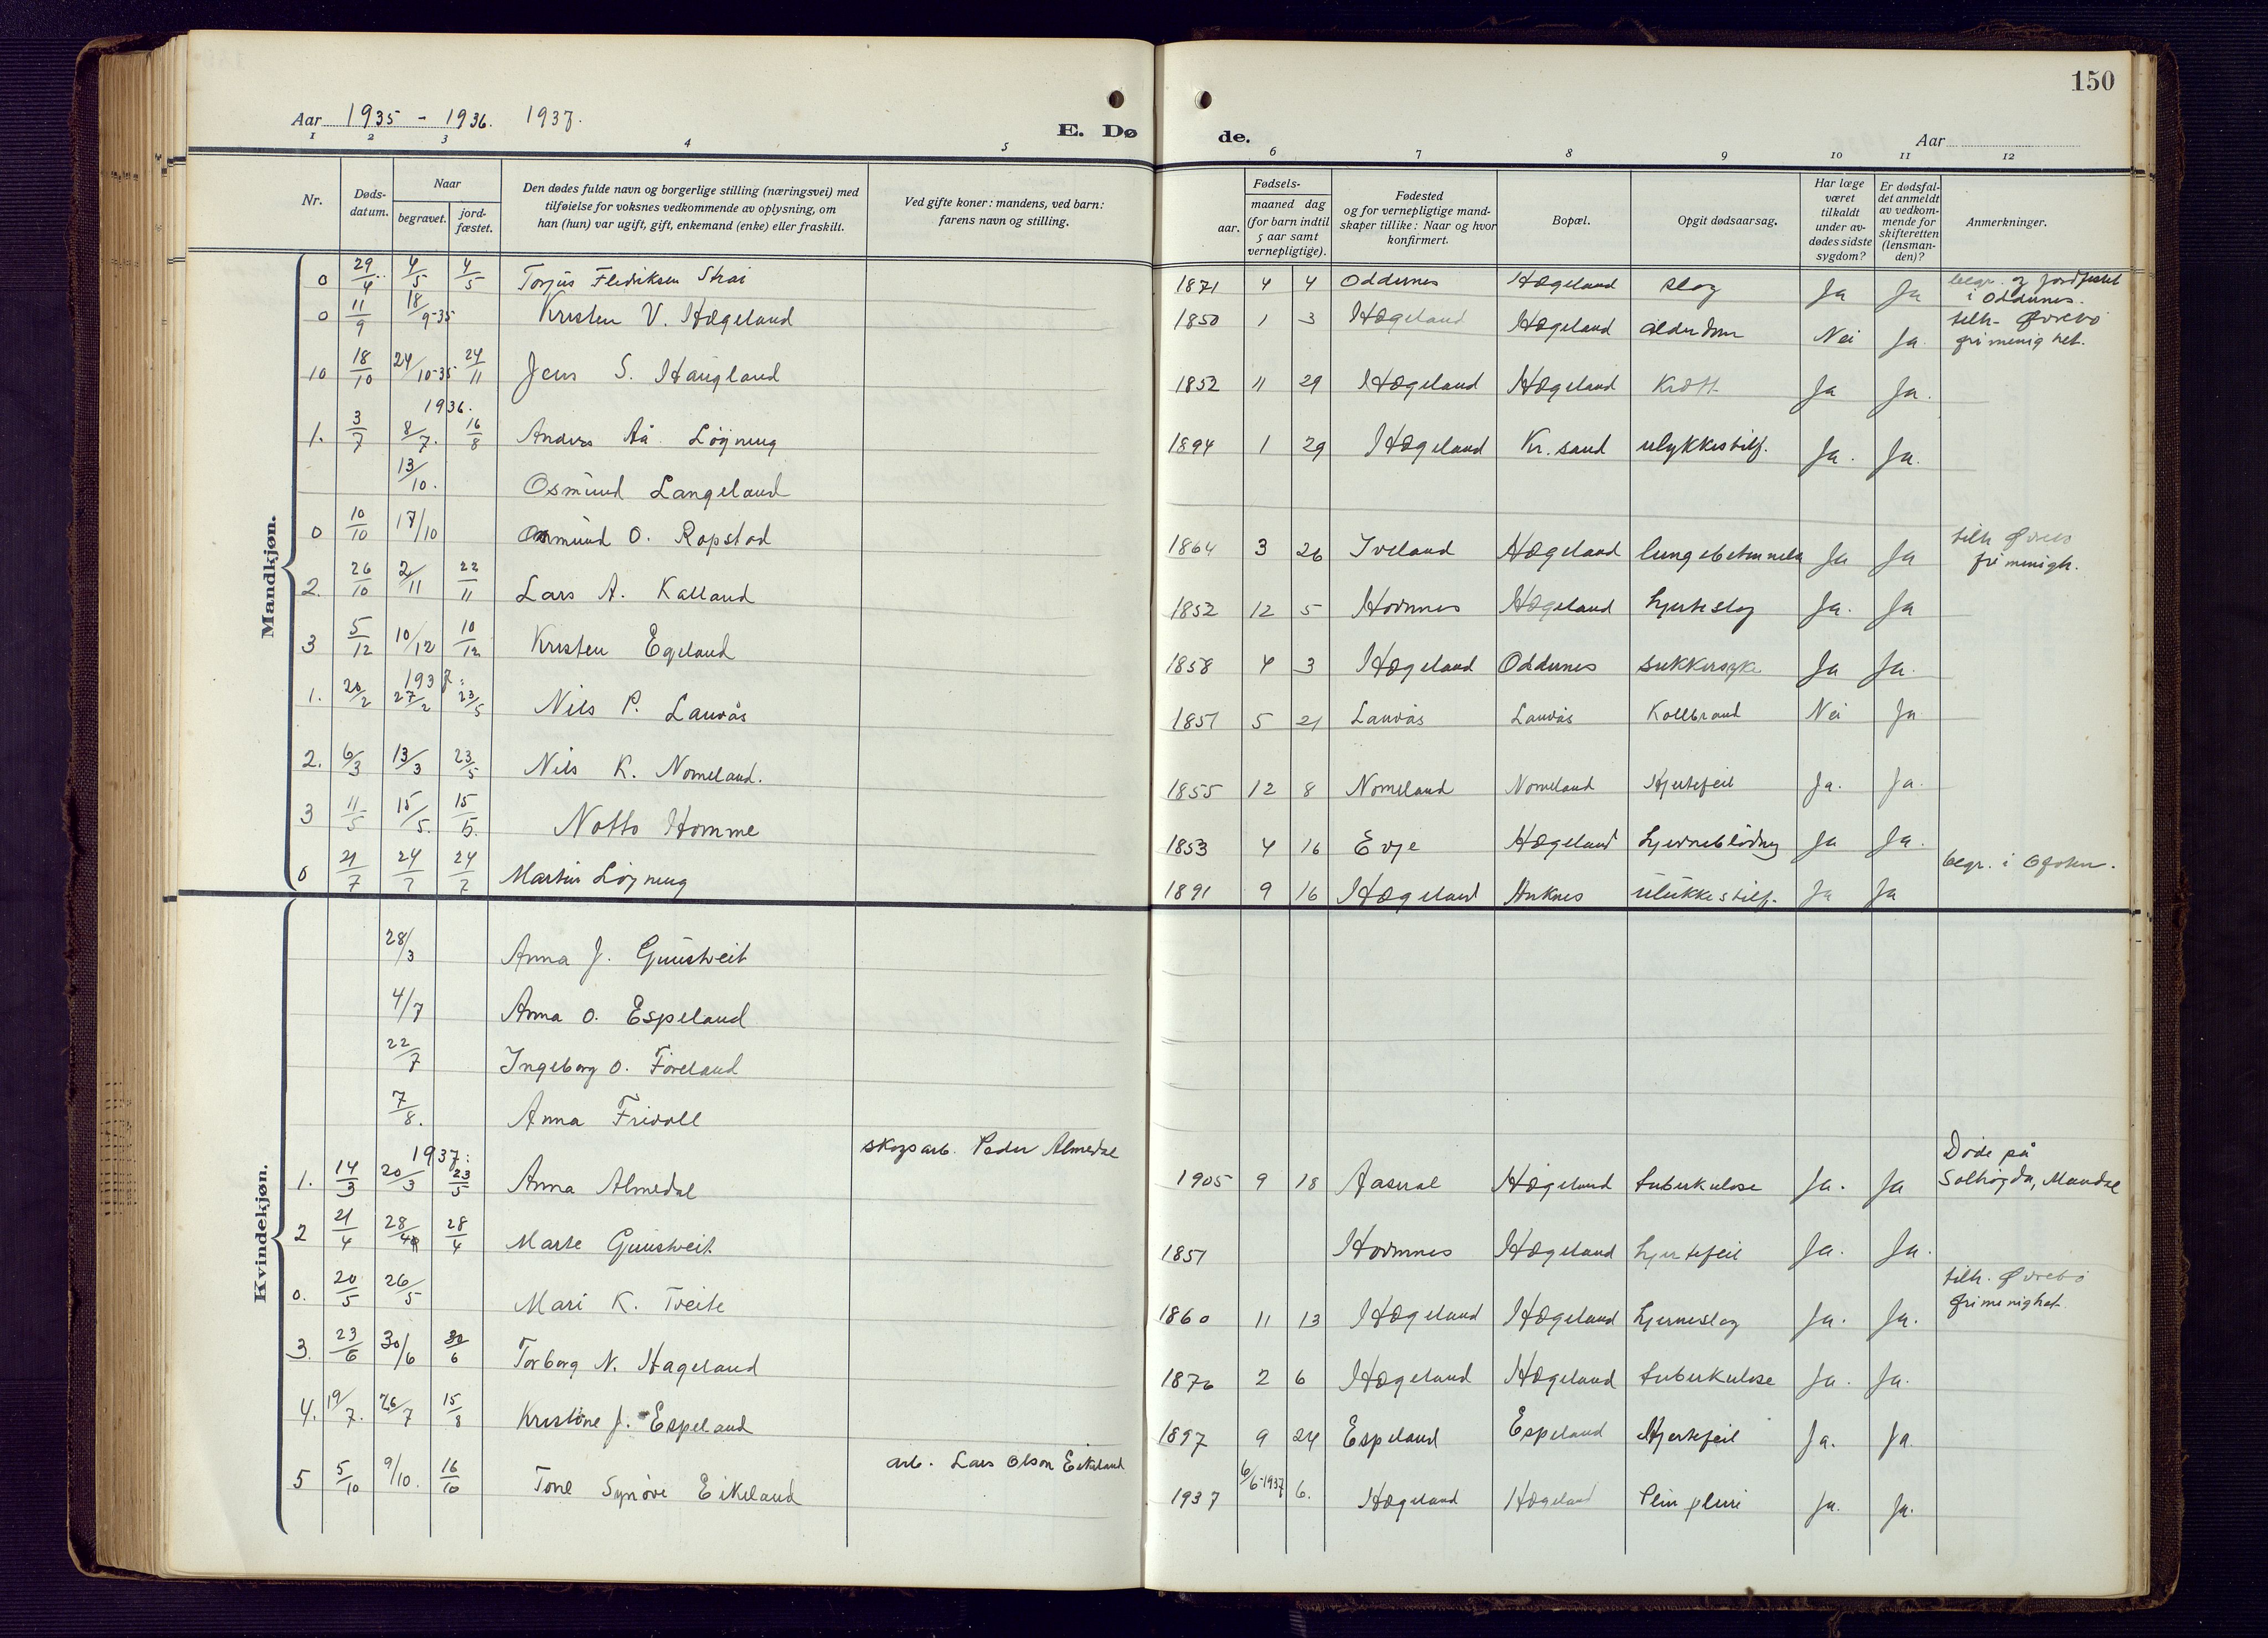 150
Aar 1935 - 1936. 1937.
E. Dø de.
Aar
1 2 3 4 5 6 7 8 9 10 11 12
Nr.
Døds-
datum.
Naar
begravet.
jord-
fæstet.
Den dødes fulde navn og borgerlige stilling (næringsvei) med
tilføielse for voksnes vedkommende av oplysning, om
han (hun) var ugift, gift, enkemand (enke) eller fraskilt.
Ved gifte koner: mandens, ved barn:
farens navn og stilling.
Fødsels-
aar. maaned dag
(for barn indtil
5 aar samt
vernepligtige).
Fødested
og for vernepligtige mand-
skaper tillike: Naar og hvor
konfirmert.
Bopæl.
Opgit dødsaarsag.
Har læge
været
tilkaldt
under av-
dødes sidste
sygdom?
Er dødsfal-
det anmeldt
av vedkom-
mende for
skifteretten
(lensman-
den)?
Anmerkninger.
Mandkjøn.
0 29/4 4/5 4/5 Torjus Fredriksen Strai 1871 4 4 Oddernes Hægeland slag Ja Ja begr. og jordfestet
i Oddernes.
0 11/9 18/9-35 Kristen V. Hægeland 1850 1 3 Hægeland Hægeland alderdom Nei Ja tilh. Øvrebø
frimenighet.
10 18/10 24/10-35 24/11 Jens S. Haugland 1852 11 29 Hægeland Hægeland Kræft Ja Ja.
1936.
1. 3/7 8/7. 16/8 Anders Aa. Løyning 1894 1 29 Hægeland Kr. sand ulykkestilf. Ja. Ja.
13/10. Osmund Langeland
0 10/10 17/10 Osmund O. Ropstad 1864 3 26 Iveland Hægeland lungebetennelse Ja Ja tilh Øvrebø
frimenigh.
2. 26/10 2/11 22/11 Lars A. Kalland 1852 12 5 Hornnes Hægeland hjerteslag Ja. Ja
3 5/12 10/12 10/12 Kristen Egeland 1858 4 3 Hægeland Oddernes sukkersyke Ja Ja.
1937:
1. 20/2 27/2 23/5 Nils P. Lauvås 1851 5 21 Lauvås Lauvås Kollbrand Nei Ja
2. 6/3 13/3 23/5 Nils K. Nomeland. 1855 12 8 Nomeland Nomeland Hjertefeil Ja. Ja.
3 11/5 15/5. 15/5. Notto Homme 1853 4 16 Evje Hægeland hjerneblødng Ja Ja.
0 21/7 24/7 24/7 Martin Løyning 1891 9 16 Hægeland ulukkestilf. Ja Ja begr. i
Kvindekjøn.
28/3 Anna J. Guustveit
4/7 Anna O. Espeland
22/7 Ingeborg O. Føreland
7/8. Anna Frivoll
1937:
1. 14/3 20/3 23/5 Anna Almedal skogsarb. Peder Almedal 1905 9 18 Aaseral Hægeland tuberkulose Ja. Ja Døde på
Solhøgda, Mandal
2 21/4 28/4 28/4 Marte Guustveit 1851 Hornnes Hægeland hjertefeil Ja. Ja.
0. 20/5 26/5 Mari K. Tveite 1860 11 13 Hægeland Hægeland hjerneslag Ja. Ja. tilh. Øvrebø
frimenighet.
3. 23/6 30/6 30/6 Torborg N. Hægeland 1876 2 6 Hægeland Hægeland tuberkulose Ja. Ja.
4. 19/7. 26/7 15/8 Kristine J. Espeland 1897 9 24 Espeland Espeland Hjertefeil Ja. Ja
5 5/10 9/10. 16/10 Tone Synøve Eikeland arb. Lars Olson Eikeland 1937 6/6-1937 6. Hægeland Hægeland Ja. Ja.